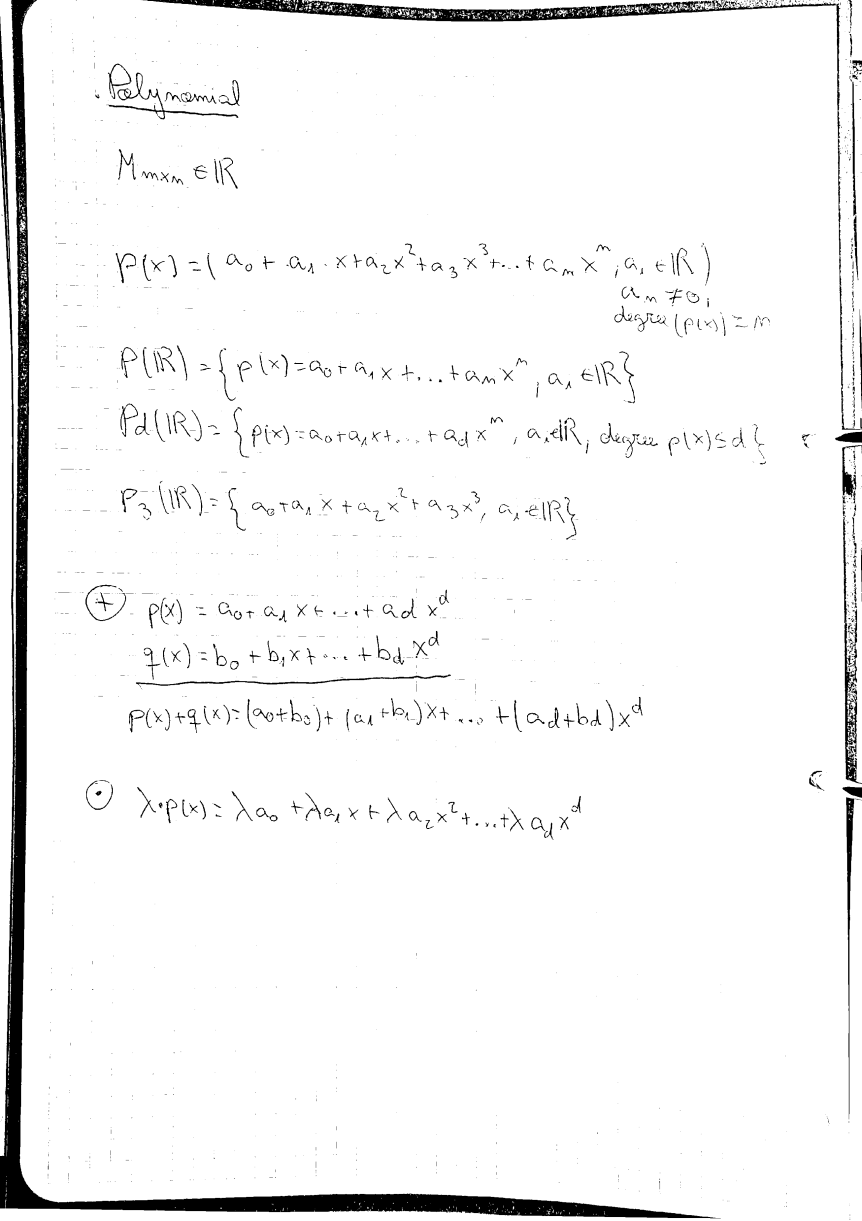 . Polynomial
M m×m ∈ ℝ
p(x) = ( a₀ + a₁ · x + a₂x² + a₃x³ + ... + aₘ xᵐ, a₁ ∈ ℝ )
aₘ ≠ 0,
degree (p(x)) = m
P(ℝ) = { p(x) = a₀ + a₁x + ... + aₘxᵐ, a₁ ∈ ℝ }
Pd(ℝ) = { p(x) = a₀ + a₁x + ... + a_d xᵐ, a₁ ∈ ℝ, degree p(x) ≤ d }
P₃(ℝ) = { a₀ + a₁x + a₂x² + a₃x³, a₁ ∈ ℝ }
⊕ p(x) = a₀ + a₁x + ... + ad x^d
q(x) = b₀ + b₁x + ... + b_d x^d
p(x)+q(x) = (a₀+b₀) + (a₁+b₁)x + ... + (ad+bd)x^d
⊙ λ·p(x) = λa₀ + λa₁x + λa₂x² + ... + λ a_d x^d